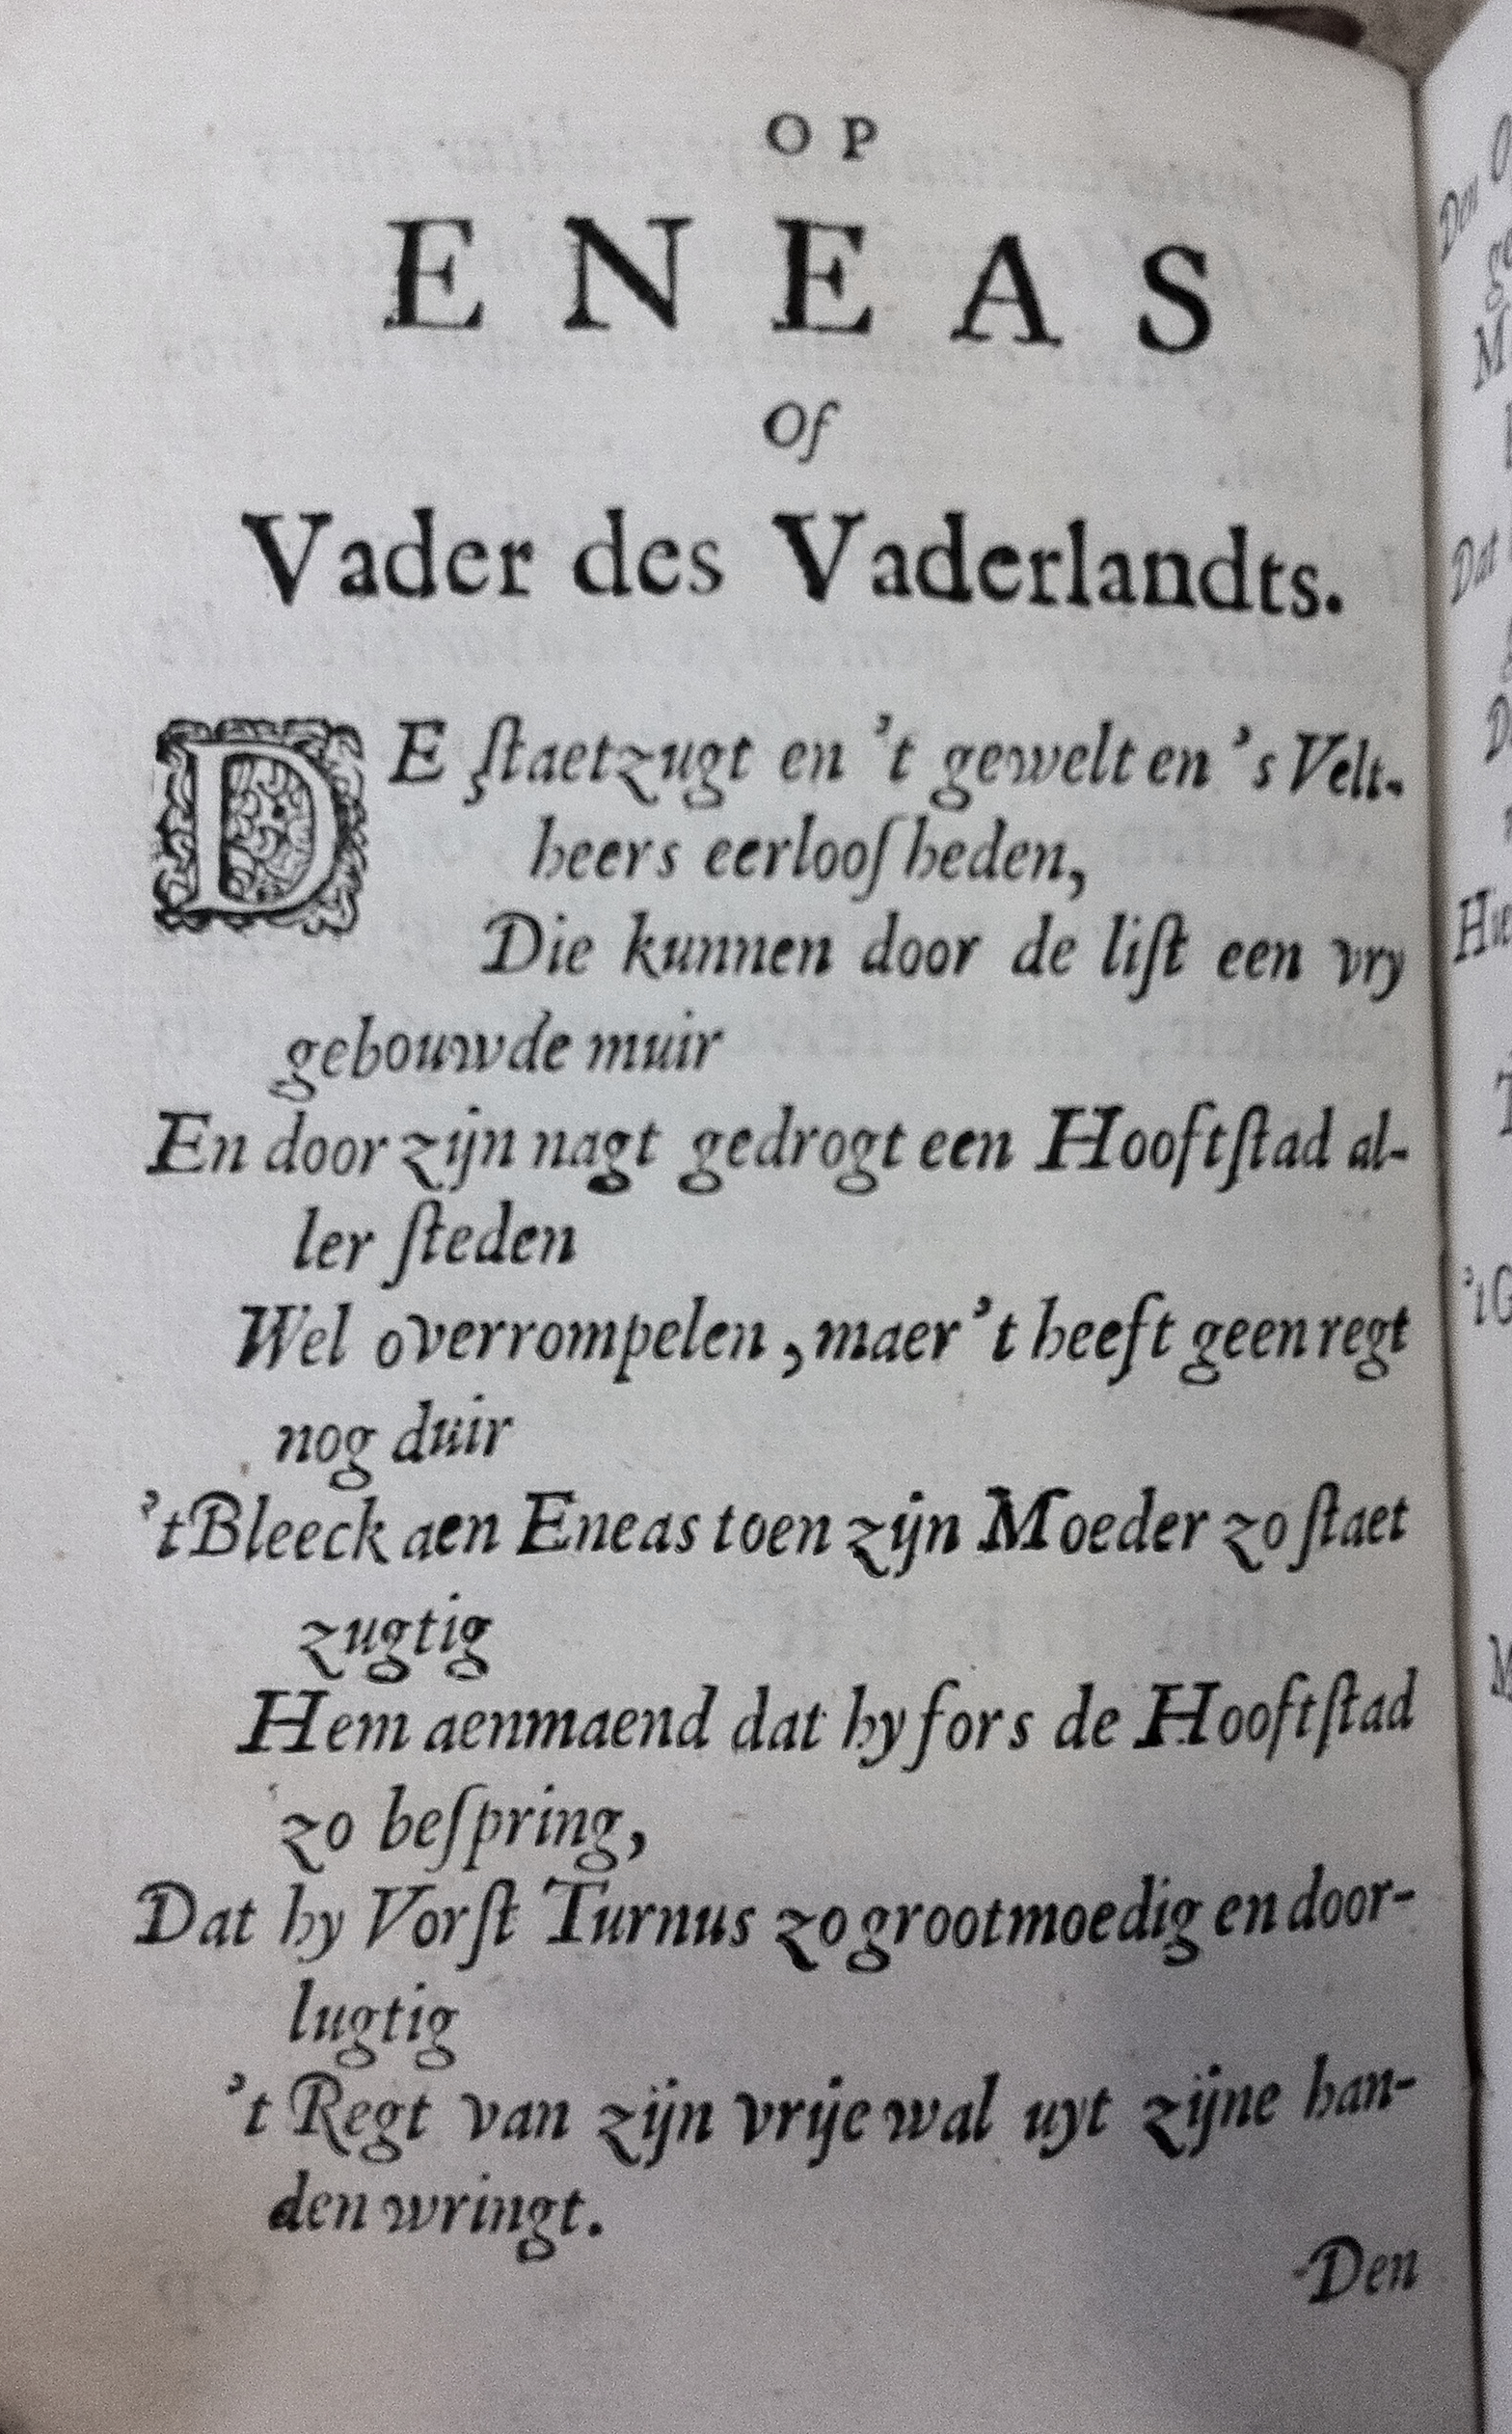 OP
ENEAS
Of
Vader des Vaderlandts.
DE ſtaetzugt en 't gewelt en 's Velt-
heers eerlooſheden,
Die kunnen door de liſt een vry
gebouwde muir
En door zijn nagt gedrogt een Hooftſtad al-
ler ſteden
Wel overrompelen, maer 't heeft geen regt
nog duir
't Bleeck aen Eneas toen zijn Moeder zo ſtaet
zugtig
Hem aenmaend dat hy fors de Hooftſtad
zo beſpring,
Dat hy Vorſt Turnus zo grootmoedig en door-
lugtig
't Regt van zijn vrije wal uyt zijne han-
den wringt.
Den
Den
M
Dat